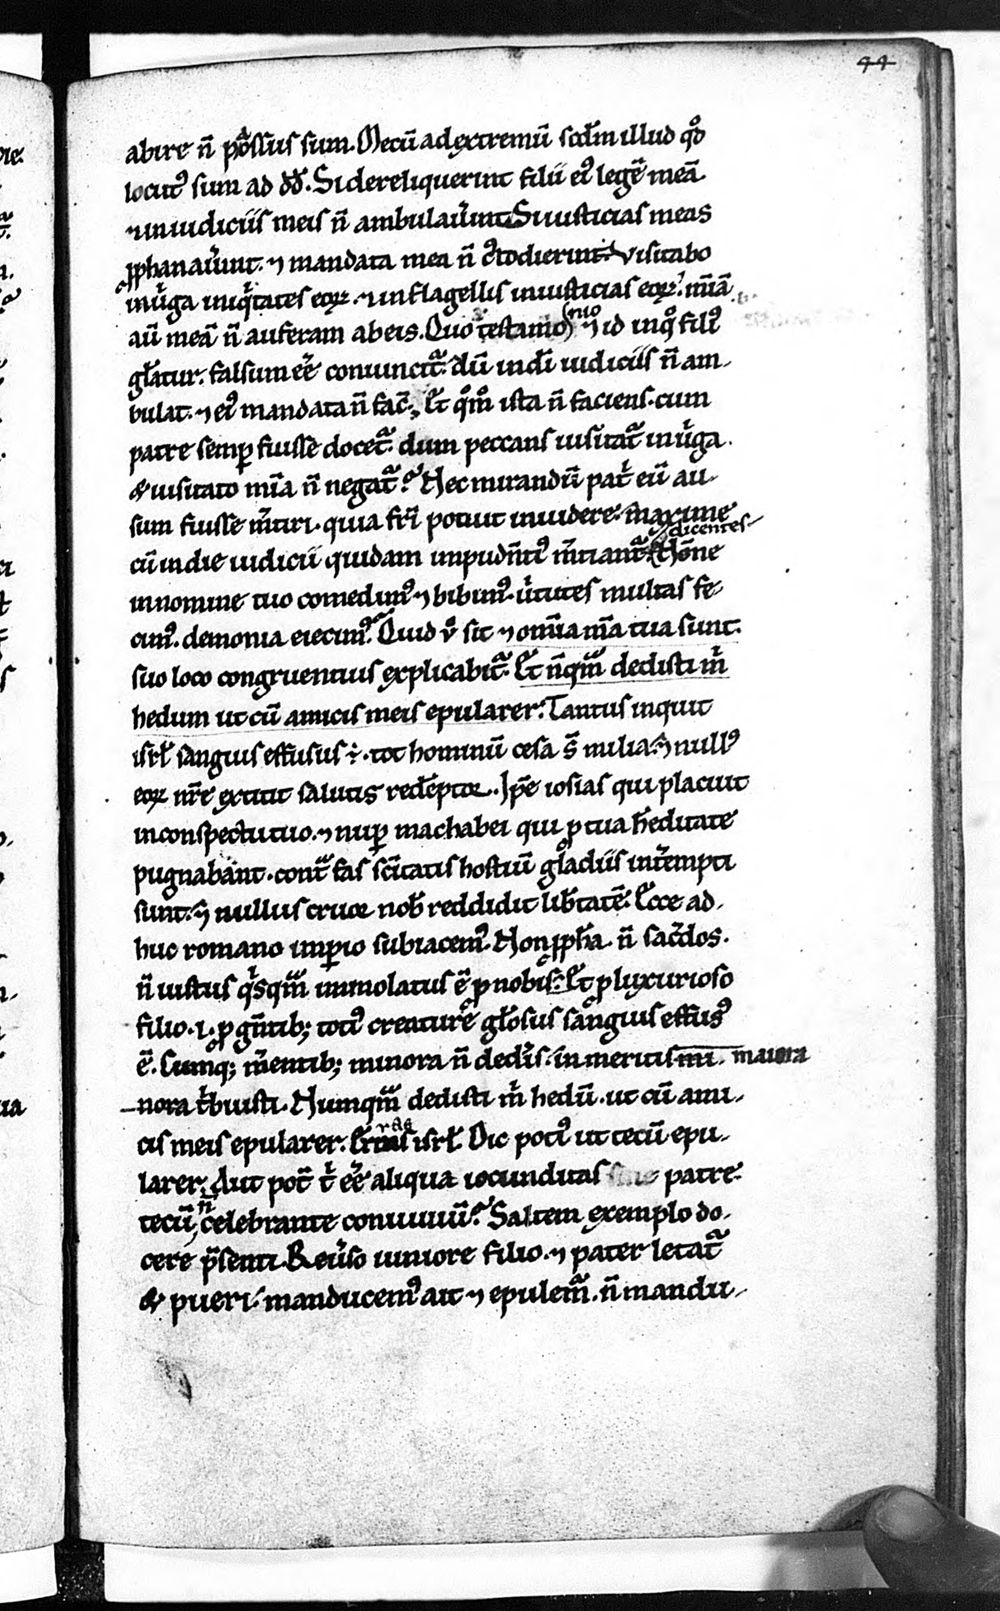 44
abire n̄ po̅ssus sum. Mecū ad extremū scd̄m illud qd̊
locut᷒ sum ad dd̄. Si dereliquerint filii ei᷒ legē meā
⁊ in iudiciis meis n̄ ambulau̅int. Si iusticias meas
ꝓphanau̅int. ⁊ mandata mea n̄ c᷒todierint. Visitabo
in u̅ga iniq̅tates eoꝝ. ⁊ in flagellis iniusticias eoꝝ. mīā
au̅ meā n̄ auferam ab eis. Quo testamō ⁊ id inqͦ fili᷒
gl̄atur. falsum eē̄ conuincit᷑. dū in dī iudiciis n̄ am-
bulat. ⁊ ei᷒ mandata n̄ fac̄. Et qͦmͦ ista n̄ faciens. cum
patre semꝑ fuisse docet᷑. dum peccans uisitat᷑ in u̅ga.
& uisitato mīa n̄ negat᷑. Nec mirandū pat̄ eū au-
sum fuisse m̄tiri. quia frī potuit inuidere. maxime
cū in die iudicii quidam impudn̄ti᷒ m̄tiant᷑ dicentes Nōne
in nomine tuo comedim᷒ ⁊ bibim᷒. u̅tutes multas fe-
cim᷒. demonia eiecim᷒. Quid v̊ sit ⁊ omīa mīa tua sunt.
suo loco congruentius explicabit᷑. Et nūqᷓm dedisti m̄
hedum ut cū amicis meis epularer. Tantus inquit
isrl̄ sanguis effusus ÷. tot hominū cesa s̄ milia. ⁊ null᷒
eoꝝ nr̄e extitit salutis redēptor. Ip̄e iosias qui placuit
in conspectu tuo. ⁊ nuꝑ machabei qui ꝓ tua h̄editate
pugnabant. contᷓ fas sc̄itatis hostiū gladiis int̄empti
sunt. ⁊ nullus cruor nob̄ reddidit lib̄tatē. Ecce ad-
huc romano imꝑio subiacem᷒. Non ꝓph̄a. n̄ sac̄dos.
n̄ iustus qͥsqᷓm immolatus ē ꝓ nobis. Et ꝓ luxurioso
filio .i. ꝓ gn̄tib; toti᷒ creature gl̄osus sanguis effus᷒
ē. Cumq; m̄entib; minora n̄ ded̄is. in meritis mi- maiora
nora t̄buisti. Numqᷓm dedisti m̄ hedū. ut cū ami-
cis meis epularer. Erras isrl̄. Dic poti᷒ ut tecū epu-
larer. Aut pot̄ t̄ eē̄ aliqua iocunditas sine patre
tecū n̄ celebrante conuiuiū. Saltem exemplo do-
cere p̄senti. Reu̅so iuniore filio. ⁊ pater letat᷑
& pueri. manducem᷒ ait ⁊ epulem᷑. n̄ mandu-